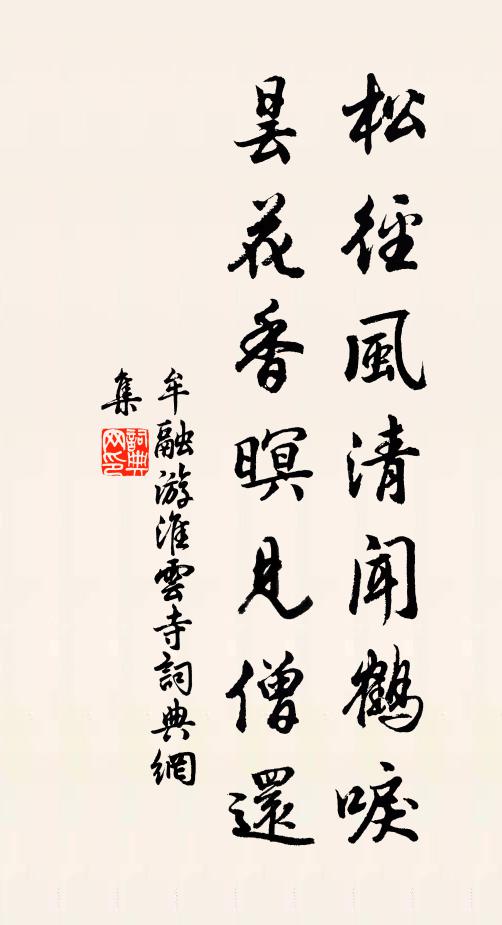 松徑風清聞鶴唳
曇花香暝見僧還
牟融游淮雲寺詞典網
集
詞典网印